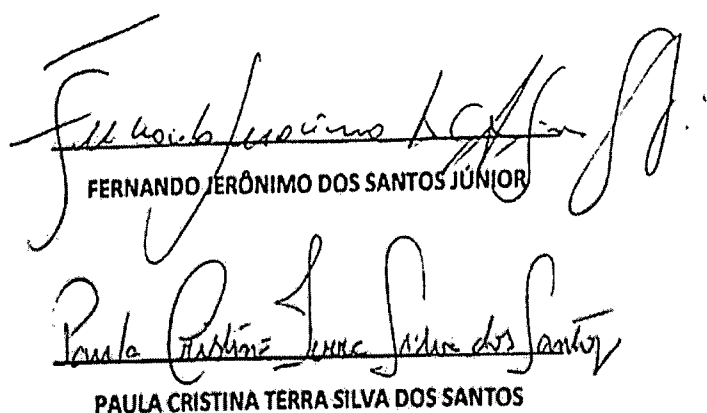 Fernando Jerônimo
FERNANDO JERÔNIMO DOS SANTOS JÚNIOR
Paula Cristina Terra Silva dos Santos
PAULA CRISTINA TERRA SILVA DOS SANTOS